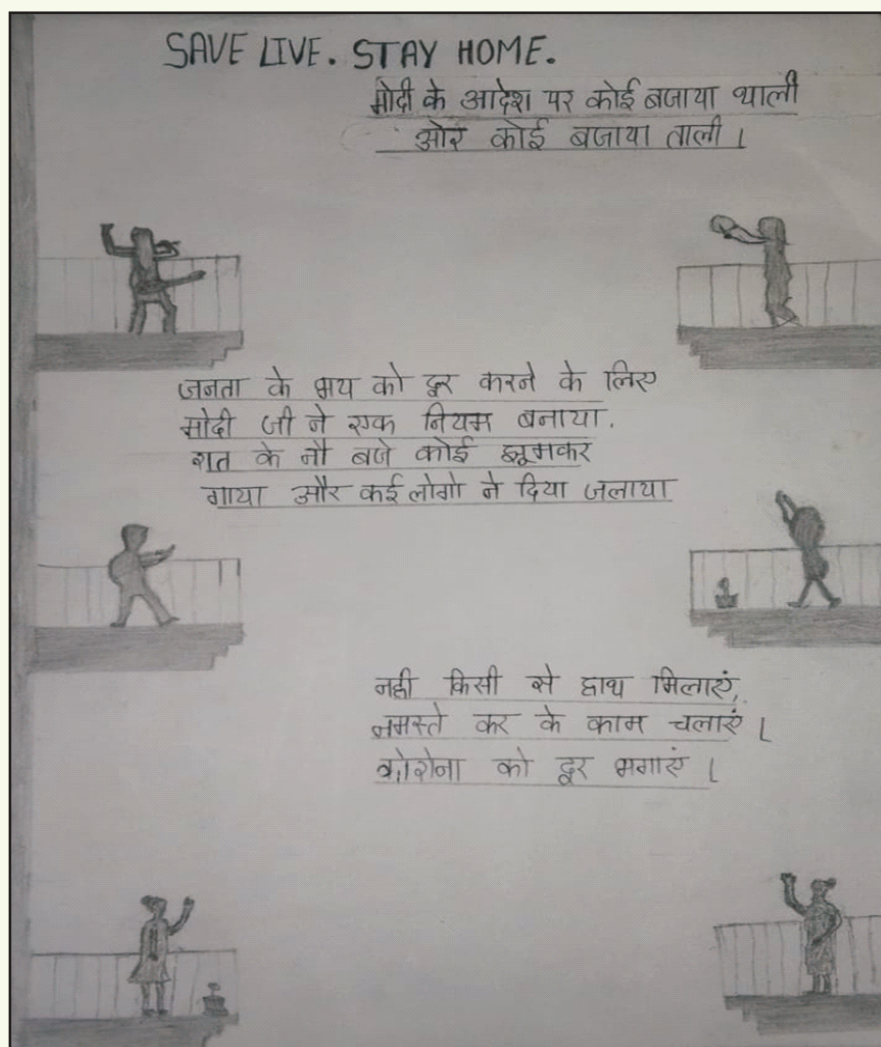 SAVE LIVE. STAY HOME.
मोदी के आदेश पर कोई बजाया थाली
ओर कोई बजाया ताली।
जनता के भय को दूर करने के लिए
मोदी जी ने एक नियम बनाया.
रात के नौ बजे कोई झूमकर
गाया और कई लोगो ने दिया जलाया
नही किसी से हाथ मिलाएं,
नमस्ते कर के काम चलाएं।
कोरोना को दूर भगाएं।